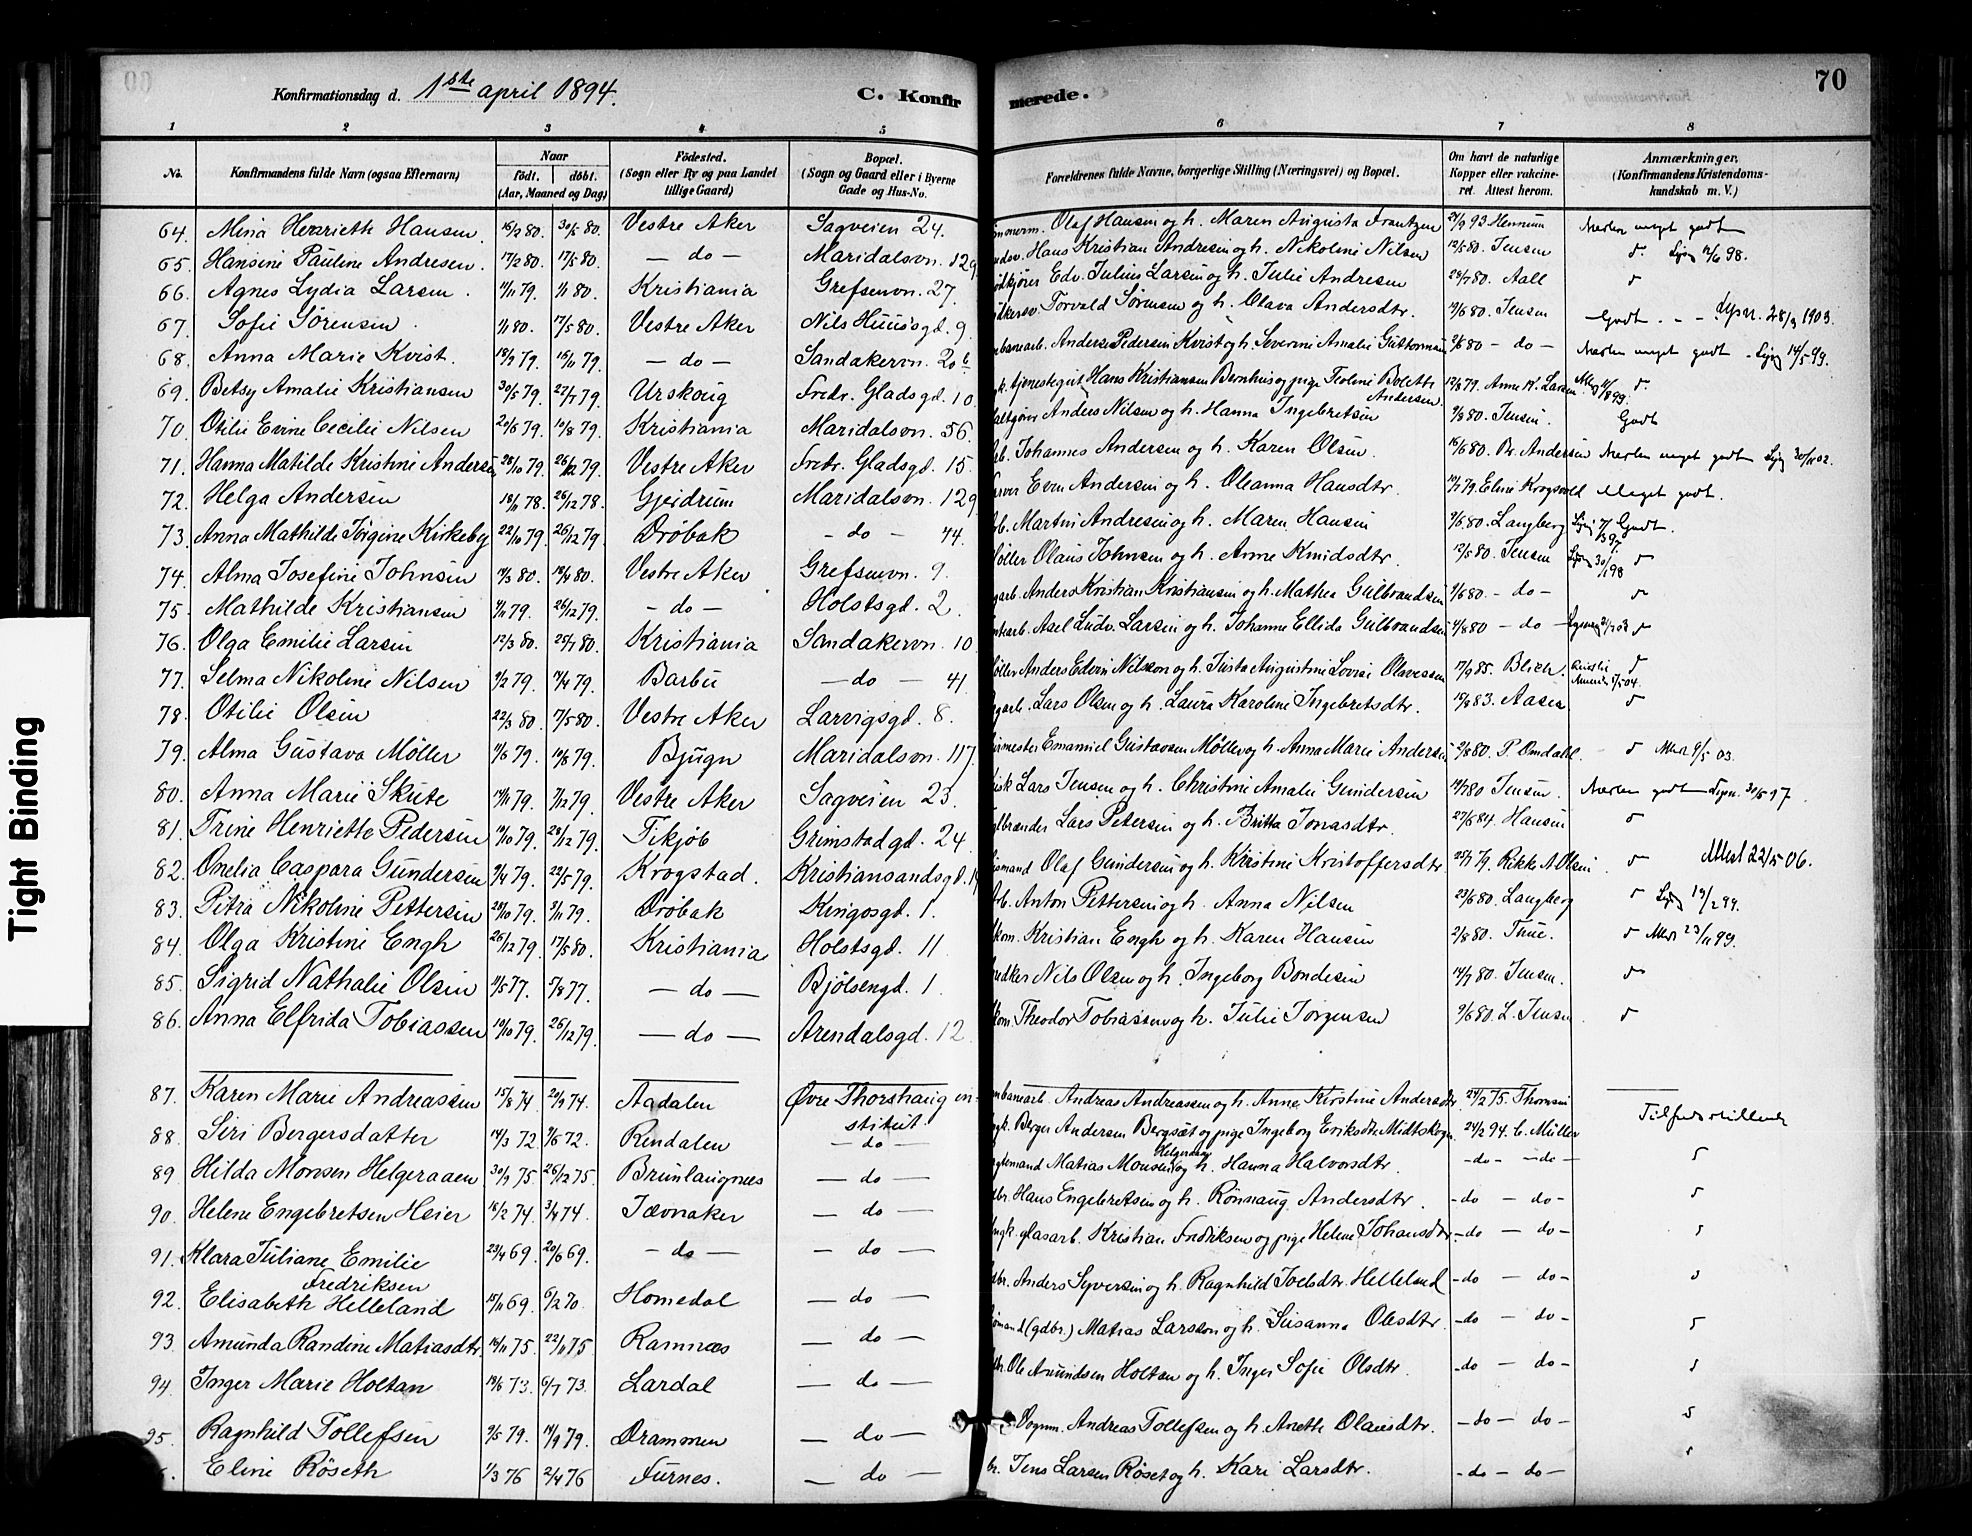 Konfirmationsdag d. 1ste april 1894.
C. Konfirmerede.
70
1 2 3 4 5 6 7 8
No.
Konfirmandens fulde Navn (ogsaa Efternavn)
Naar
födt. döbt.
(Aar, Maaned og Dag)
Födested.
(Sogn eller By og paa Landet tillige Gaard)
Bopæl.
(Sogn og Gaard eller i Byerne Gade og Hus-No.
Forældrenes fulde Navne, borgerlige Stilling (Næringsvei) og Bopæl.
Om havt de naturlige Kopper eller vakcineret. Attest herom.
Anmærkninger,
(Konfirmandens Kristendomskundskab m. V.)
64. Mina Henriette Hansen. 16/2 80. 30/5 80. Vestre Aker Sagveien 24. Olaf Hansen og h. Maren Augusta Frantzen 24/9 93 Hennum Næsten meget godt
65. Hansine Pauline Andresen. 17/2 80. 17/5 80. — do — Maridalsvn. 129 Hans Kristian Andresen og h. Nikoline Nilsen 12/5 80. Jensen
66. Agnes Lydia Larsen. 11/11 79. 1/1 80. Kristiania Grefsenvn. 27. Edv. Julius Larsen og h. Julie Andresen 28/7 80. Aall
67. Sofie Sörensen. 1/1 80. 17/5 80. Vestre Aker Nils Huusgd. 9. Torvald Sörensen og h. Olava Andersdtr. 19/6 80. Jensen Godt
68. Anna Marie Kvist. 18/9 79. 15/11 79. — do — Sandakervn. 20b Anders Pedersen Kvist og h. Severine Amalie Guttormsen 2/6 80 — do — Næsten meget godt
69. Betsy Amalie Kristiansen 30/5 79. 27/7 79. Urskoug Fredr. Gladsgd. 10. tjenestegut Hans Kristiansen Bernhus og pige Teoline Bolette Andersen. 12/8 79. Anne K. Larsen
70. Otilie Evine Cecilie Nilsen 20/6 79. 10/8 79. Kristiania Maridalsvn. 56. Anders Nilsen og h. Hanna Ingebretsen 9/8 80. Jensen. Godt
71. Hanna Matilde Kristine Andersen 28/10 79. 26/12 79. Vestre Aker Fredr. Gladsgd. 15. Johannes Andersen og h. Karen Olsen. 16/6 80. Br. Andersen Næsten meget godt
72. Helga Andersen 18/11 78. 26/12 78. Gjeidrum Maridalsvn. 129 Even Andersen og h. Oleanna Hansdtr. 10/7 79. Eline Krogsvold Meget godt.
73. Anna Mathilde Jörgine Kirkeby 22/10 79. 26/12 79. Dröbak — do — 44. Martin Andresen og h. Maren Hansen 9/6 80. Langberg Godt.
74. Alma Josefine Johnsen 11/3 80. 18/4 80. Vestre Aker Grefsenvn. 9. Olaus Johnsen og h. Anne Knudsdtr. 12/5 80. Jensen
75. Mathilde Kristiansen 9/11 79. 26/12 79. — do — Holstsgd. 2. Anders Kristian Kristiansen og h. Mathea Gulbrandsen 9/6 80. — do —
76. Olga Emilie Larsen 12/3 80. 25/7 80. Kristiania Sandakervn. 10 Axel Ludv. Larsen og h. Johanne Ellida Gulbrandsen 4/8 80 — do —
77. Selma Nikoline Nilsen 9/2 79. 14/4 79. Barbu — do — 41. Anders Edvin Nilsson og h. Justa Augustine Lovise Olavessen 17/9 85. Blich.
78. Otilie Olsen 22/3 80. 17/5 80. Vestre Aker Larvigsgd. 8. Lars Olsen og h. Laura Karoline Ingebretsdtr. 15/8 83. Aasen
79. Alma Gustava Möller 11/6 79. 10/8 79. Bjugn Maridalsvn. 117. Emanuel Gustavsen Möller og h. Anna Marie Andersen 2/8 80. P. Omdahl.
80. Anna Marie Skute 14/11 79. 7/12 79. Vestre Aker Sagveien 23. Lars Jensen og h. Christine Amalie Gundersen 14/7 80 Jensen. Næsten godt
81. Trine Henriette Pedersen 19/10 79. 28/12 79. Tikjöb Grimstadgd. 24. Lars Petersen og h. Britta Jonasdtr. 27/6 84. Hansen
82. Onelia Caspara Gundersen 9/4 79. 22/5 79. Krogstad. Kristiansandsgd. Olaf Gundersen og h. Kirstine Kristoffersdtr. Rikke A. Olsen. Attest 22/5 06.
83. Petra Nikoline Pettersen 28/10 79. 9/11 79. Dröbak Kingosgd. 1. Anton Pettersen og h. Anna Nilsen 23/6 80. Langberg
84. Olga Kristine Engh 26/12 79. 17/5 80. Kristiania Holstsgd. 11 Kristian Engh og h. Karen Hansen 2/8 80. Thue.
85. Sigrid Nathalie Olsen 11/5 77. 5/8 77. — do — Bjölsengd. 1. Nils Olsen og h. Ingeborg Bondesen 14/7 80. Jensen.
86. Anna Elfrida Tobiassen 19/10 79. 26/12 79. — do — Arendalsgd. 12 Theodor Tobiassen og h. Julie Jörgensen 9/6 80. L. Jensen
87. Karen Marie Andreassen 15/8 74. 20/9 74. Aadalen Øvre Thorshaug institut. Andreas Andreassen og h. Anne Kirstine Andersdtr. 24/2 75. Thomsen Tilfredsstillende
88. Siri Bergersdatter 14/3 72. 9/6 72. Rendalen — do — Berger Andersen Bergsæt og pige Ingeborg Eriksdtr Midtskogn. 24/2 94. C. Müller
89. Hilda Monsen Helgeraaen 30/9 75. 26/12 75. Brunlangnæs — do — Matias Monsen Helgeraaen og h. Hanna Halvorsdtr. — do — — do —
90. Helene Engebretsen Heier 16/2 74. 3/4 74. Jævnaker — do — Hans Engebretsen og h. Rönnaug Andersdtr. — do — do —
91. Klara Juliane Emilie Fredriksen 23/4 69. 20/6 69. — do — — do — glasarb. Kristian Fredriksen og pige Helene Johansdtr. — do — do —
92. Elisabeth Helleland 15/11 69. 6/2 70. Homedal — do — Anders Syversen og h. Ragnhild Joelsdtr. Helleland — do — do —
93. Amunda Randine Matiasdtr. 16/11 75. 22/11 75 Ramnæs — do — (gdbr.) Matias Larsson og h. Susanna Olesdtr. — do — do —
94. Inger Marie Holtan 18/6 73. 6/7 73. Lardal — do — Ole Amundsen Holtan og h. Inger Sofie Olsdtr. — do — do —
95. Ragnhild Tollefsen 9/5 79. 14/9 79. Drammen — do — Vognm. Andreas Tollefsen og h. Anette Olausdtr. — do — do —
Eline Röseth 1/3 76 2/4 76 Furnes. — do — Jens Larsen Röset og h. Kari Larsdtr. — do — do —
Tight Binding